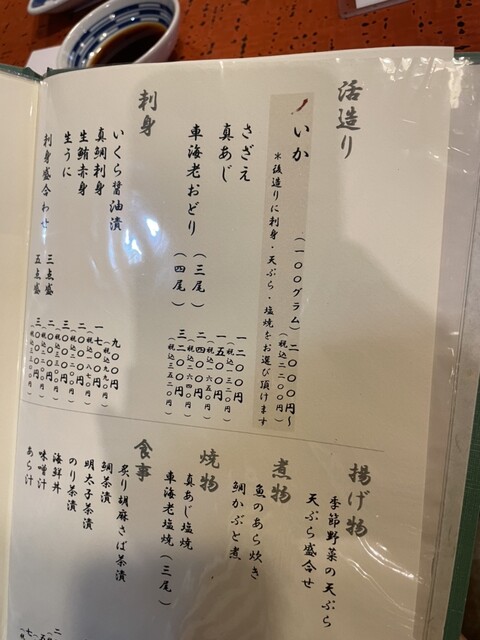 活造り
いか (一〇〇グラム) 二〇〇〇円~
(税込二二〇〇円)
*後造りに刺身・天ぷら・塩焼をお選び頂けます
さざえ 一二〇〇円
(税込一三二〇円)
真あじ 一五〇〇円
(税込一六五〇円)
車海老おどり (三尾) 二四〇〇円
(税込二六四〇円)
(四尾) 三二〇〇円
(税込三五二〇円)
刺身
いくら醤油漬 九〇〇円
(税込九九〇円)
真鯛刺身 一七〇〇円
(税込一八七〇円)
生鮪赤身 二〇〇〇円
(税込二二〇〇円)
生うに 三〇〇〇円
(税込三三〇〇円)
刺身盛合わせ 三点盛 二〇〇〇円
(税込二二〇〇円)
五点盛 三〇〇〇円
(税込三三〇〇円)
揚げ物
季節野菜の天ぷら
天ぷら盛合せ
煮物
魚のあら炊き
鯛かぶと煮
焼物
真あじ塩焼
車海老塩焼(三尾)
食事
炙り胡麻さば茶漬
鯛茶漬
明太子茶漬
のり茶漬
海鮮丼
味噌汁
あら汁